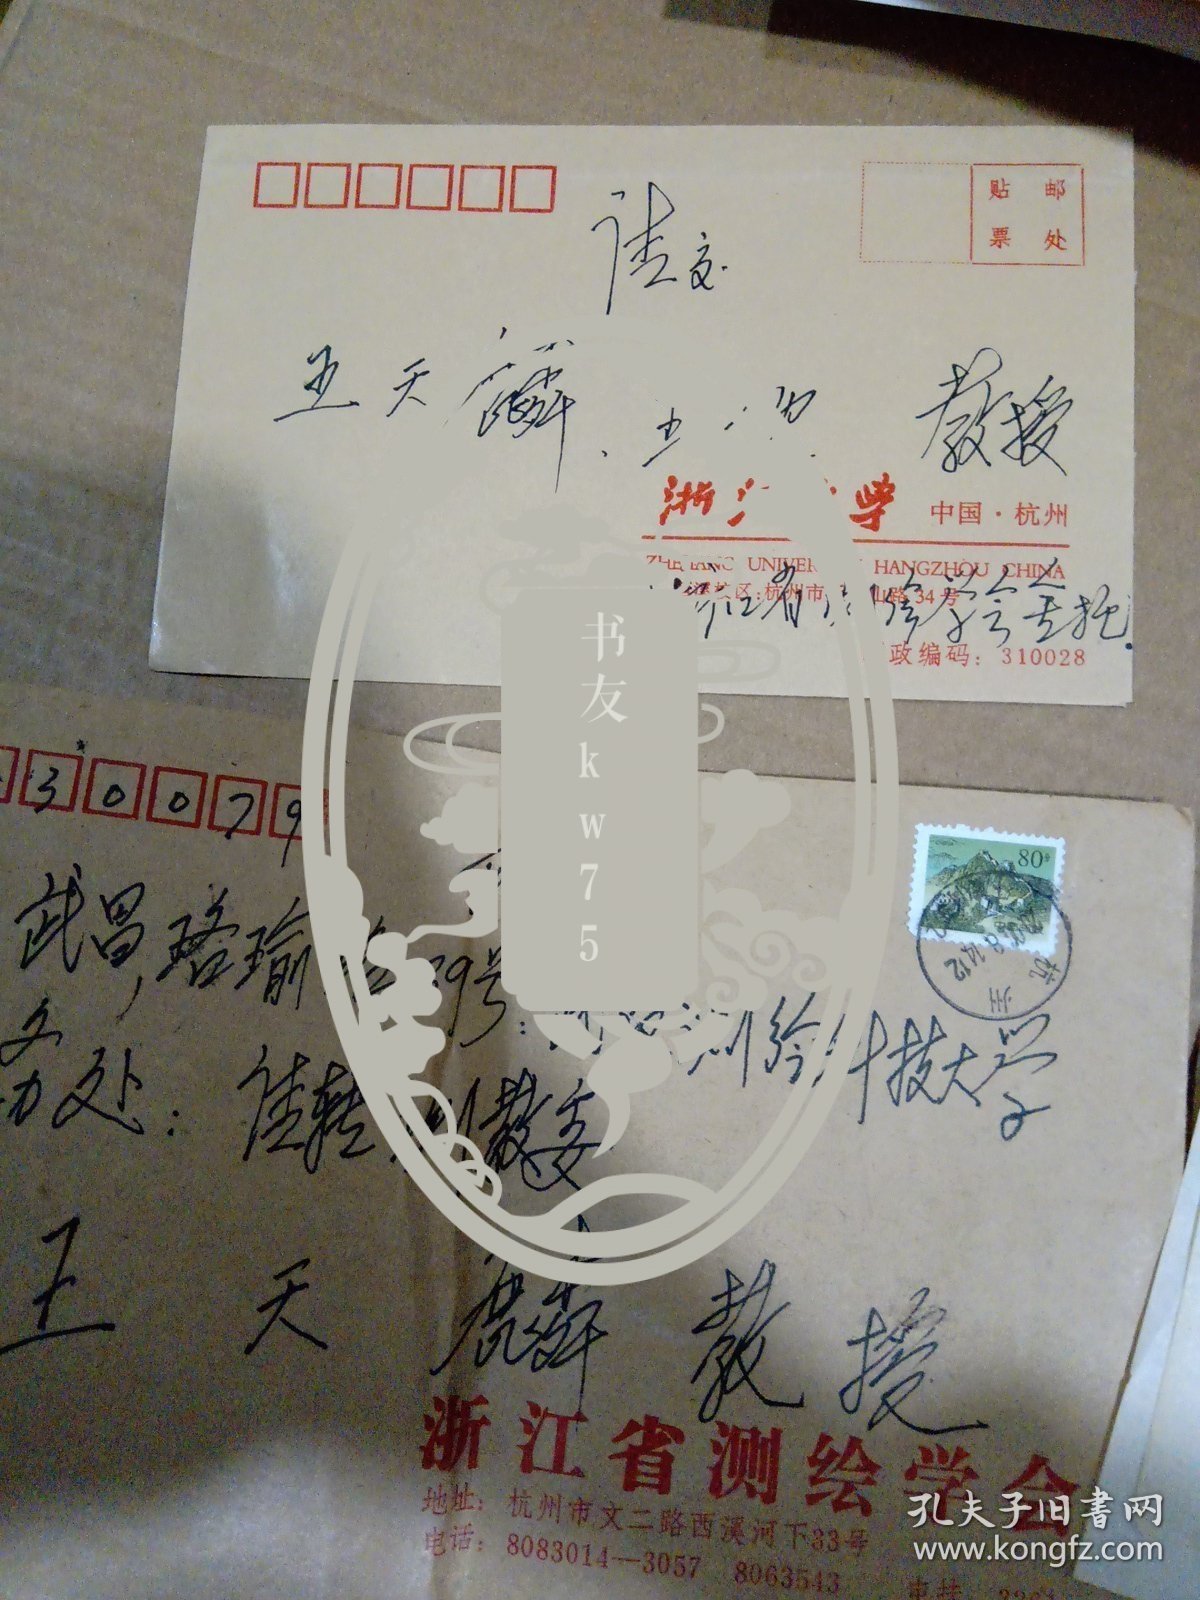 贴 邮
票 处
请交
王天麟、王 教授
浙江 学 中国·杭州
ZHEJIANG UNIVER HANGZHOU CHINA
校区:杭州市 山路34号
浙江省 绘学会 托.
政编码:310028
书友kw75
30079
武昌,珞瑜路39号: 测绘科技大学
处:请转 教委
王天麟教授
80
杭州
浙江省测绘学会
地址:杭州市文二路西溪河下33号
电话:8083014—3057 8063543 电挂
孔夫子旧書网
www.kongfz.com